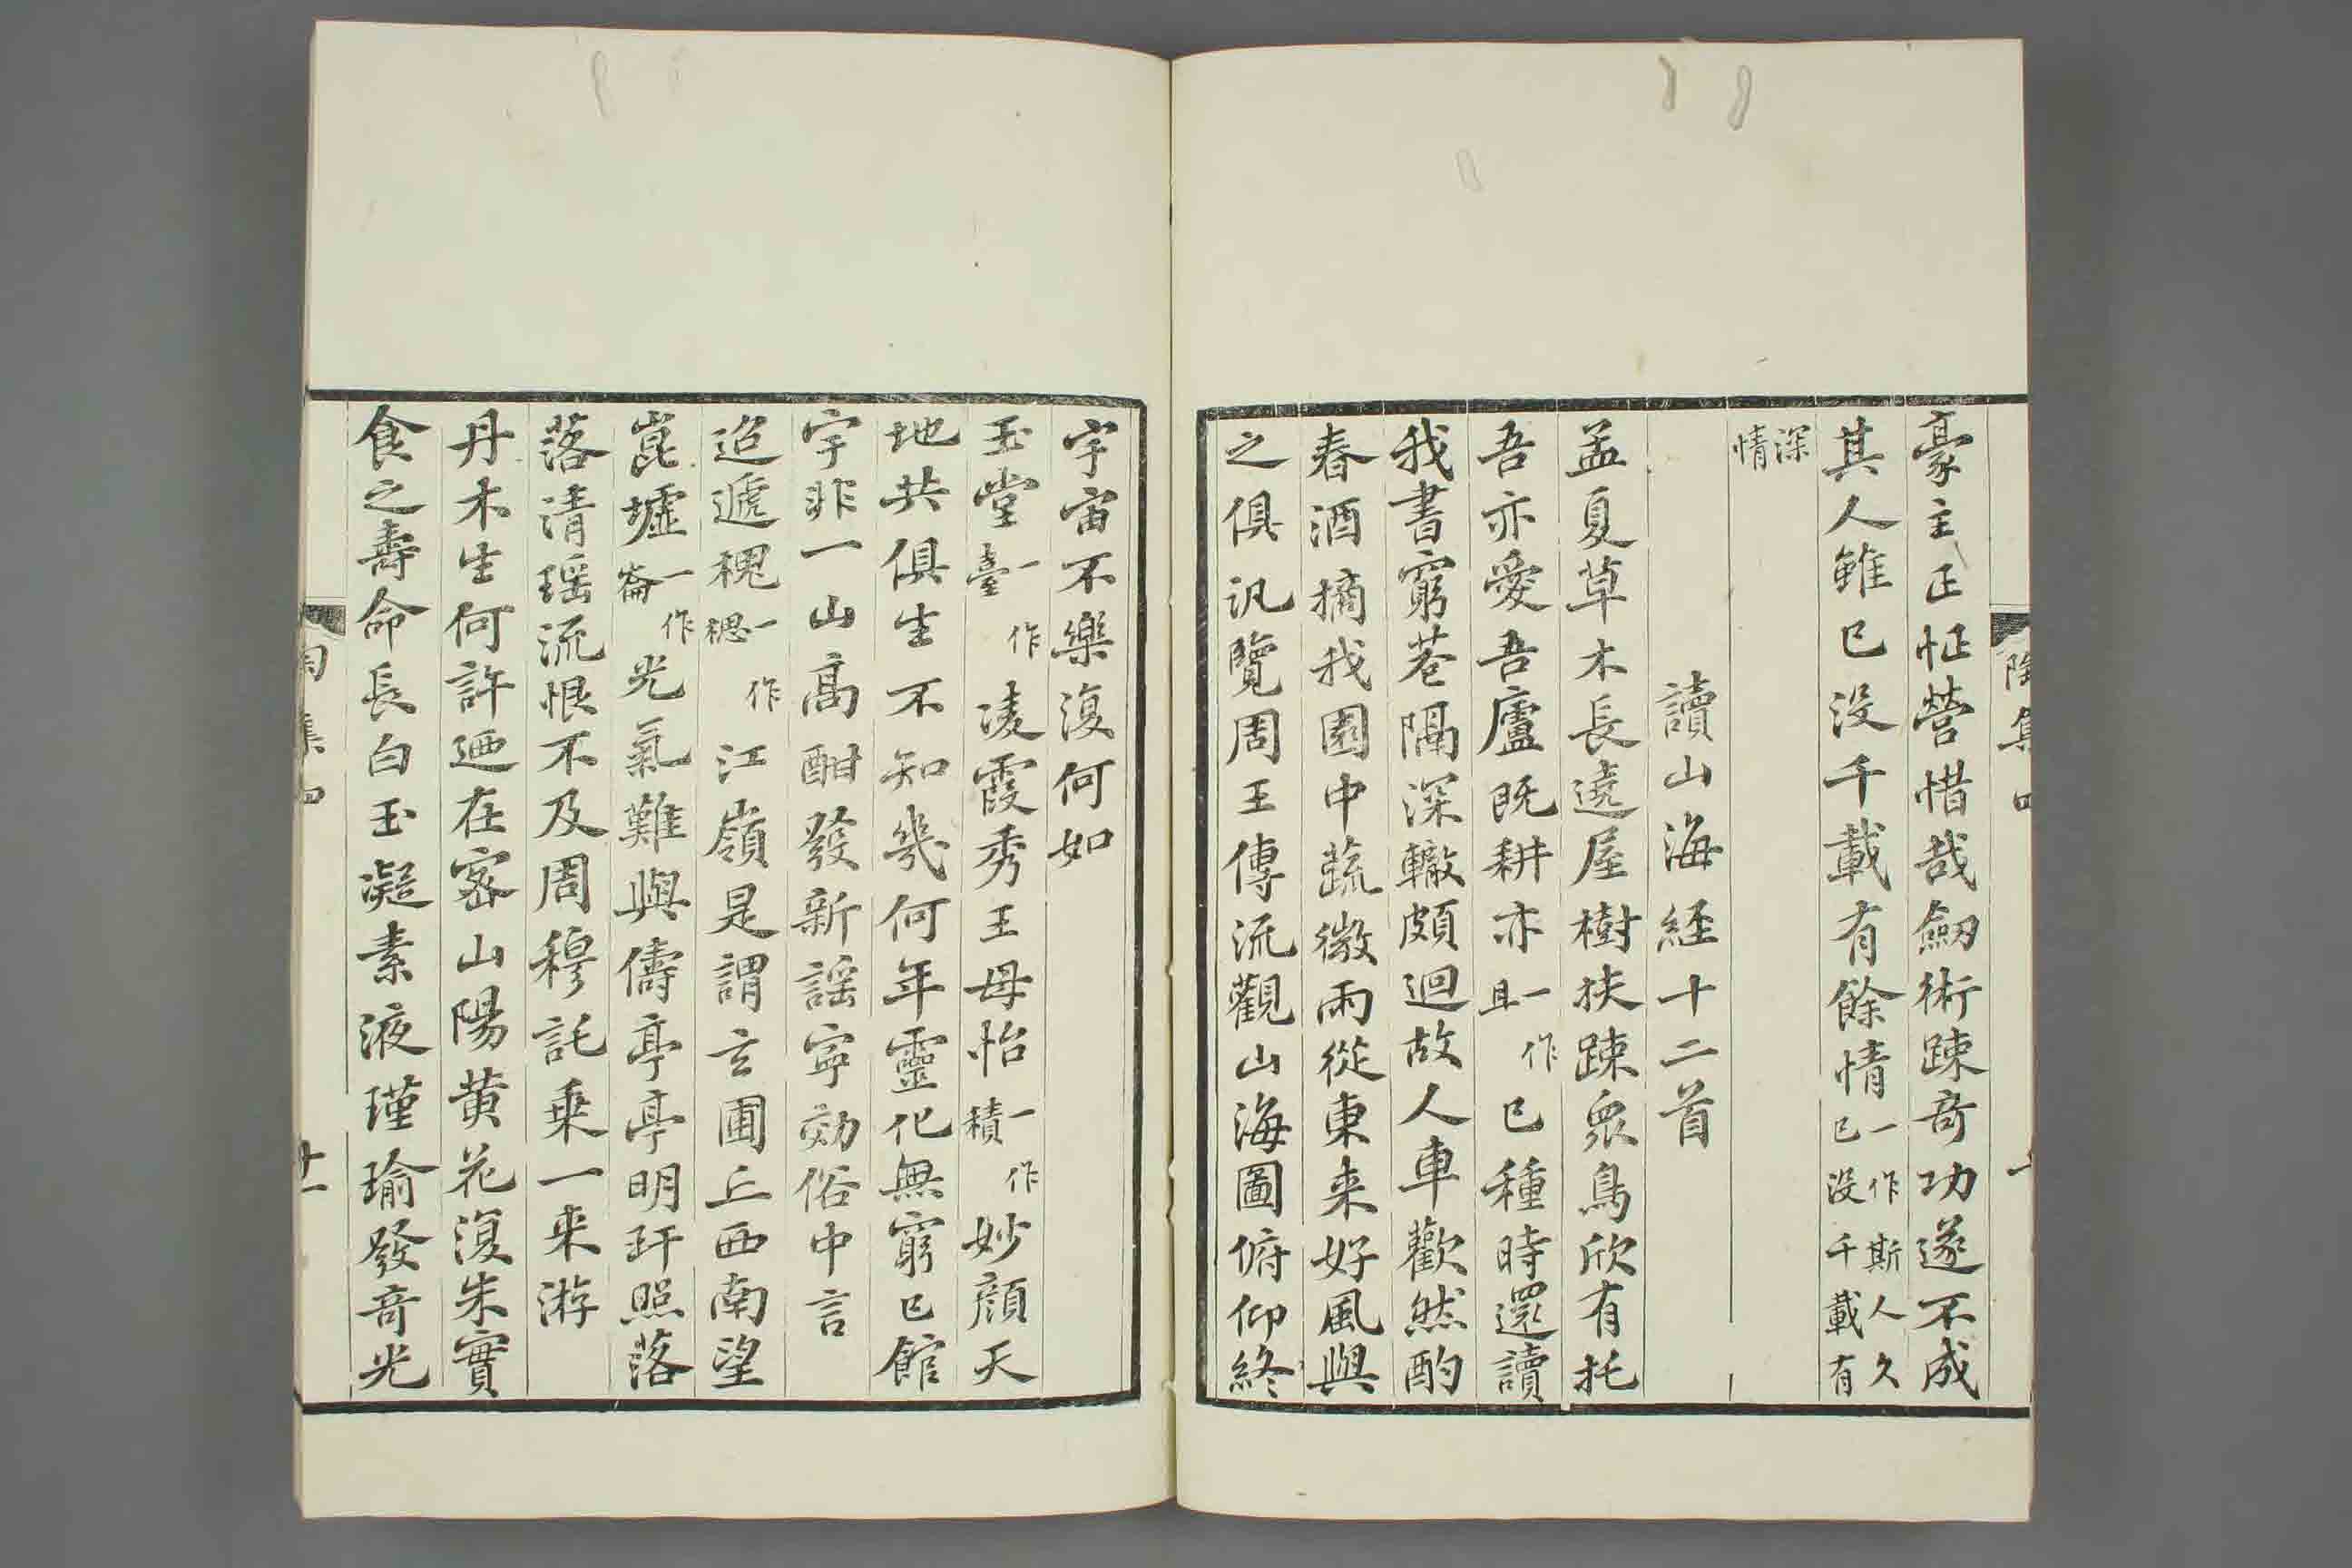 豪主正怔營惜哉劒術踈奇功遂不成
其人雖已没千載有餘情一作斯人久已没千載有
深情
讀山海經十二首
孟夏草木長遶屋樹扶踈衆鳥欣有托
吾亦愛吾廬既耕亦一作且已種時還讀
我書窮巷隔深轍頗迴故人車歡然酌
春酒摘我園中蔬微雨從東来好風與
之俱汎覽周王傳流觀山海圖俯仰終
宇宙不樂復何如
玉堂一作臺凌霞秀王母怡一作積妙顔天
地共俱生不知幾何年靈化無窮已館
宇非一山高酣發新謡寧効俗中言
迢遞槐一作㮩江嶺是謂玄圃丘西南望
崑墟一作崙光氣難與儔亭亭明玕照落
落清瑶流恨不及周穆託乗一来游
丹木生何許迺在宻山陽黄花復朱實
食之壽命長白玉凝素液瑾瑜發竒光
陶集四
十一